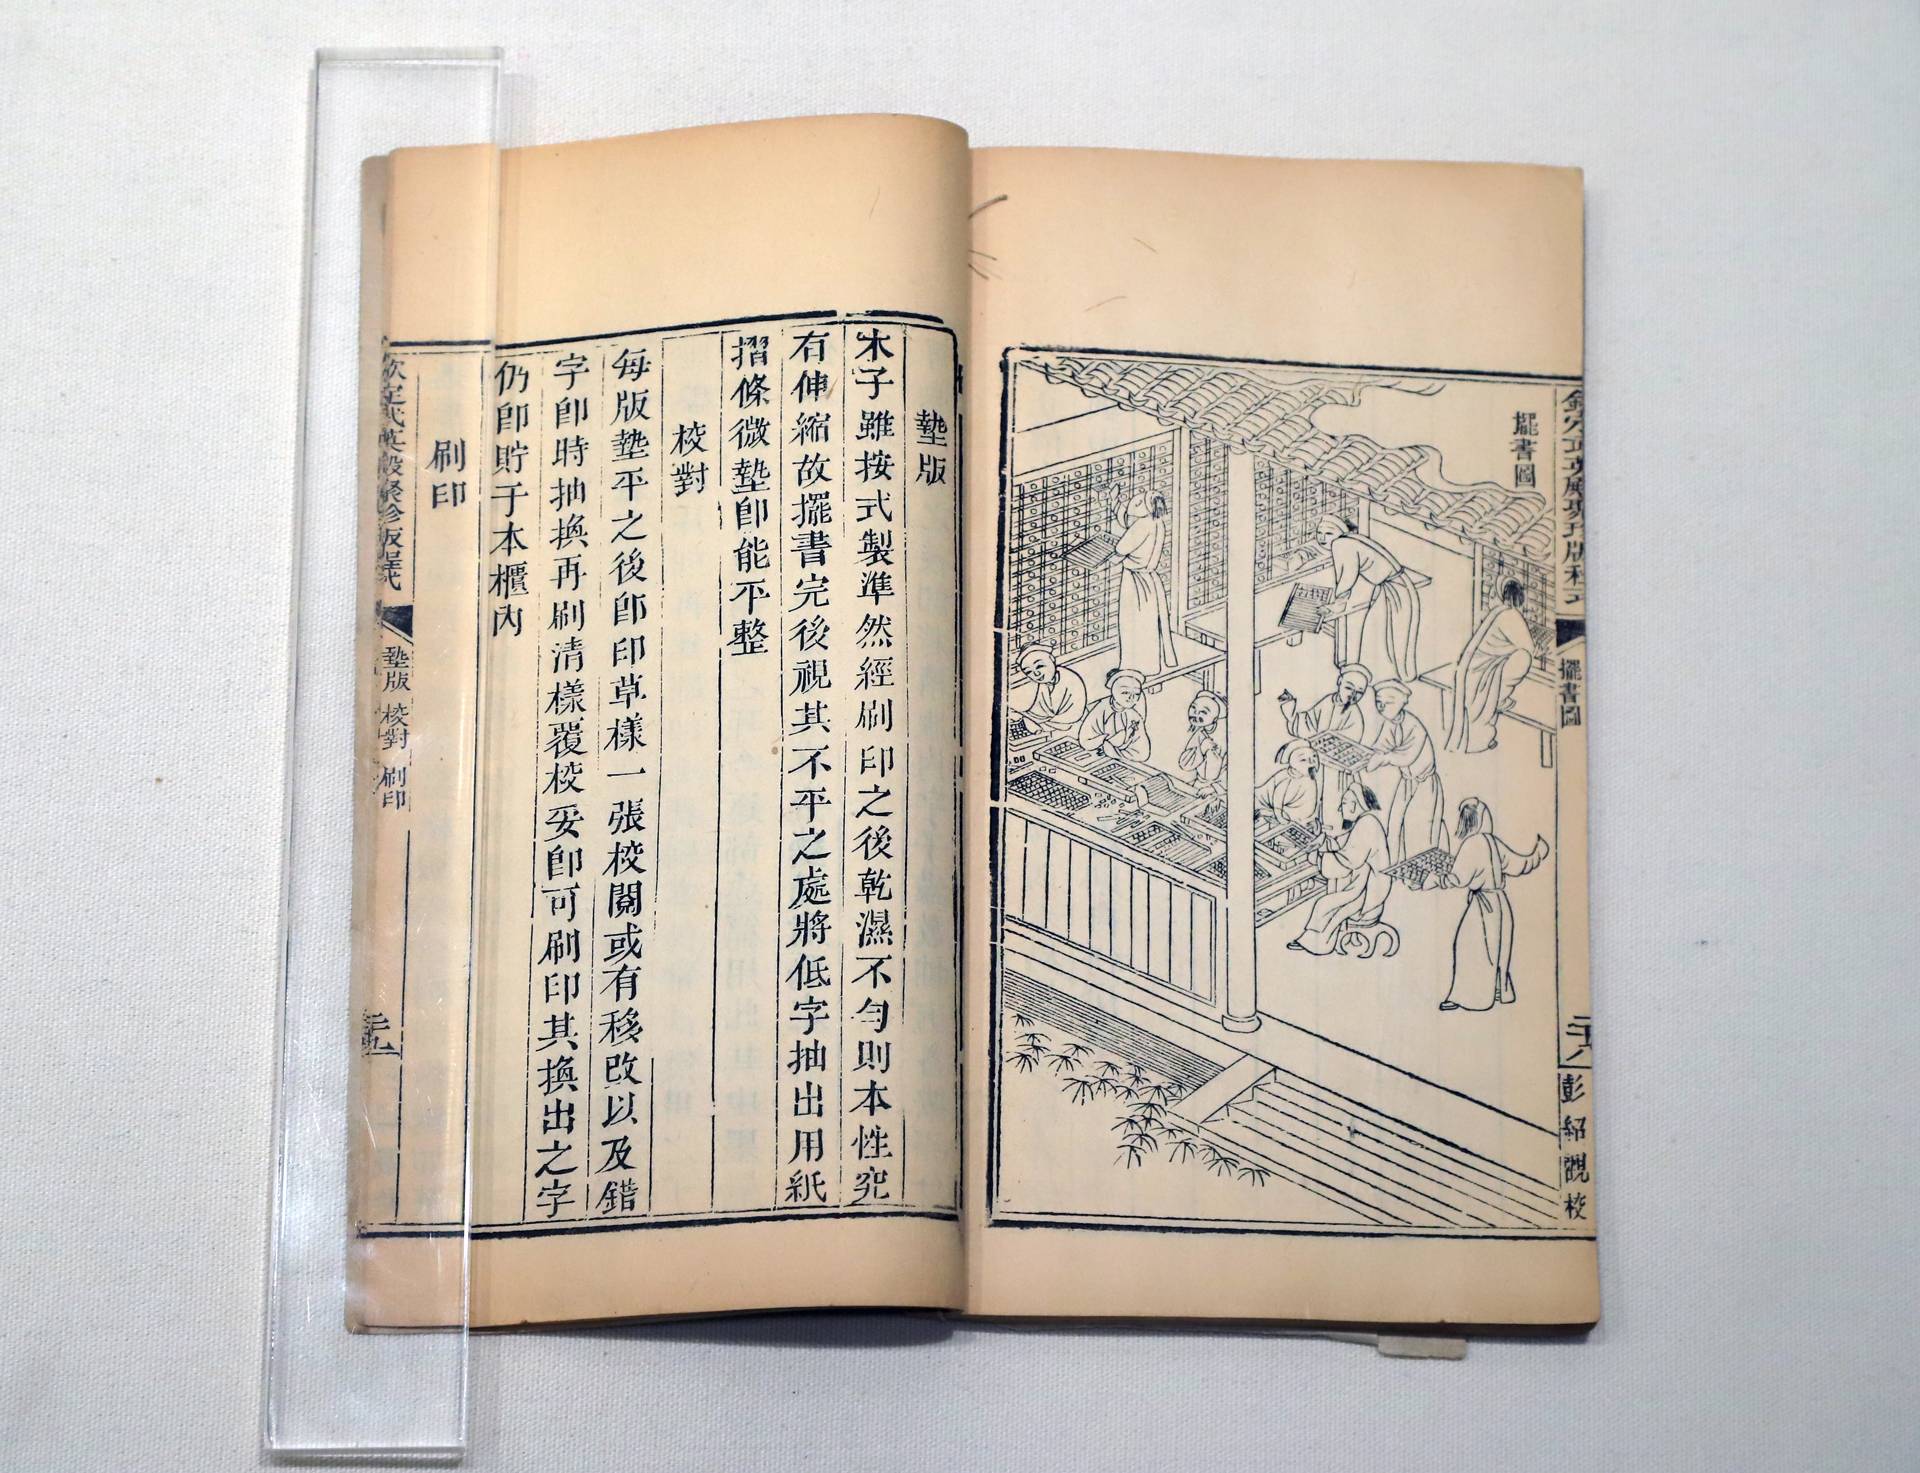 擺書圖
欽定武英殿聚珍版程式
擺書圖
二十八
彭紹觀校
墊版
木子雖按式製準然經刷印之後乾濕不勻則本性究
有伸縮故擺書完後視其不平之處將低字抽出用紙
摺條微墊卽能平整
校對
每版墊平之後卽印草樣一張校閱或有移改以及錯
字卽時抽換再刷清樣覆校妥卽可刷印其換出之字
仍卽貯于本櫃內
刷印
欽定武英殿聚珍版程式
墊版 校對 刷印
二十九